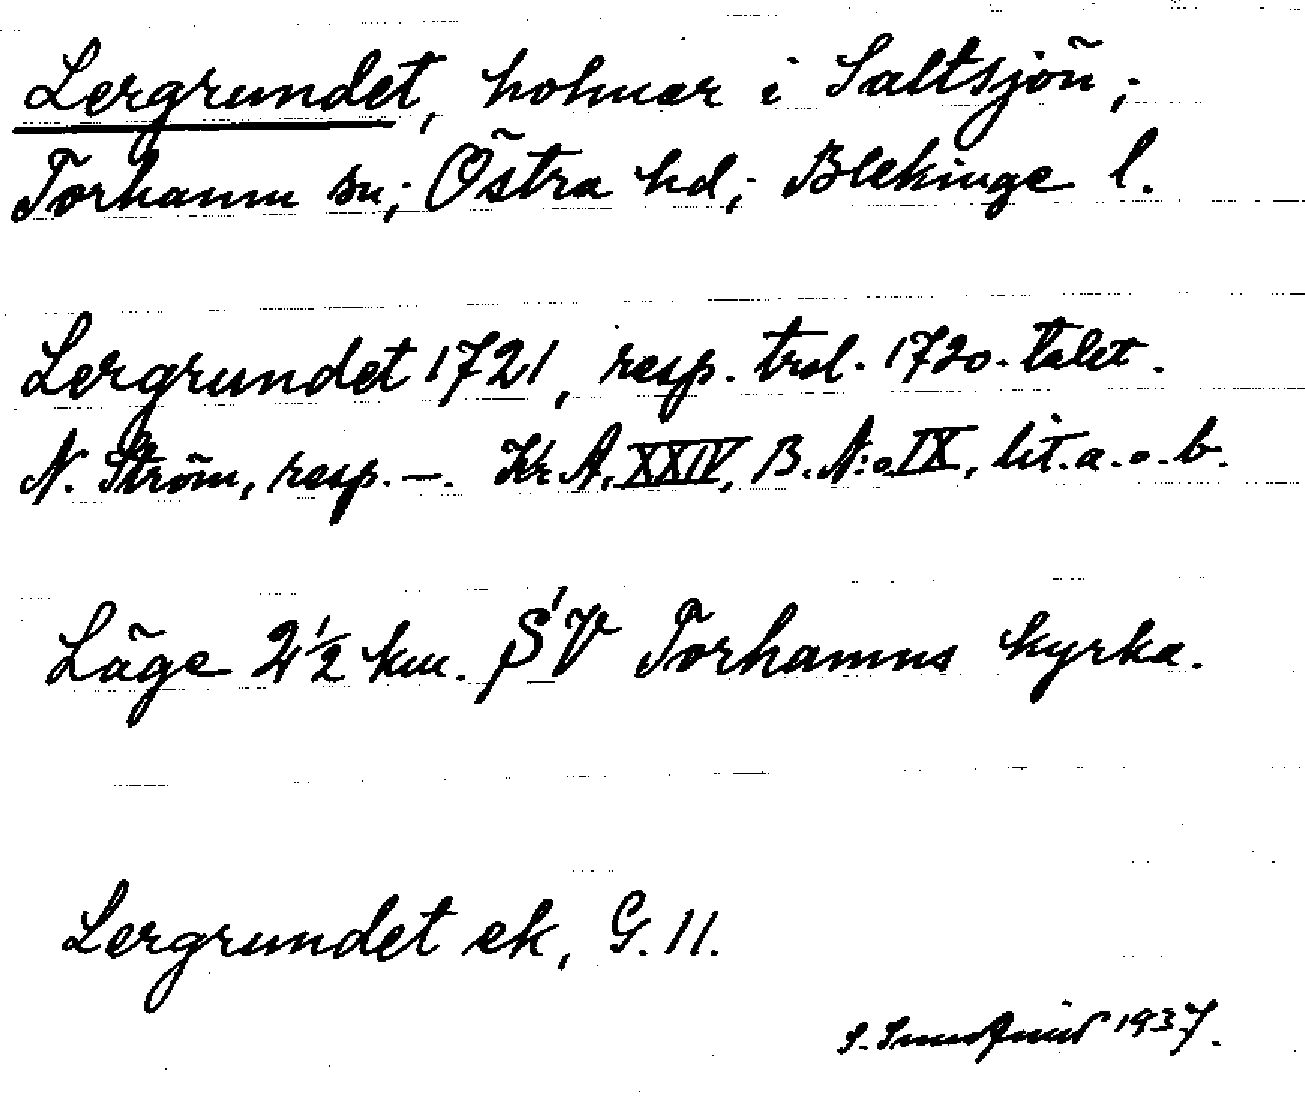 Lergrundet, holmar i Saltsjön;
Torhamn sn; Östra hd; Blekinge l.
Lergrundet 1721, resp. trol. 1720-talet.
N. Ström, resp. —. Kr. A. XXIV, B. N:o IX, lit. a. o. b.
Läge 2 1/2 km. SV Torhamns kyrka.
Lergrundet ek, G. 11.
S. 1937.